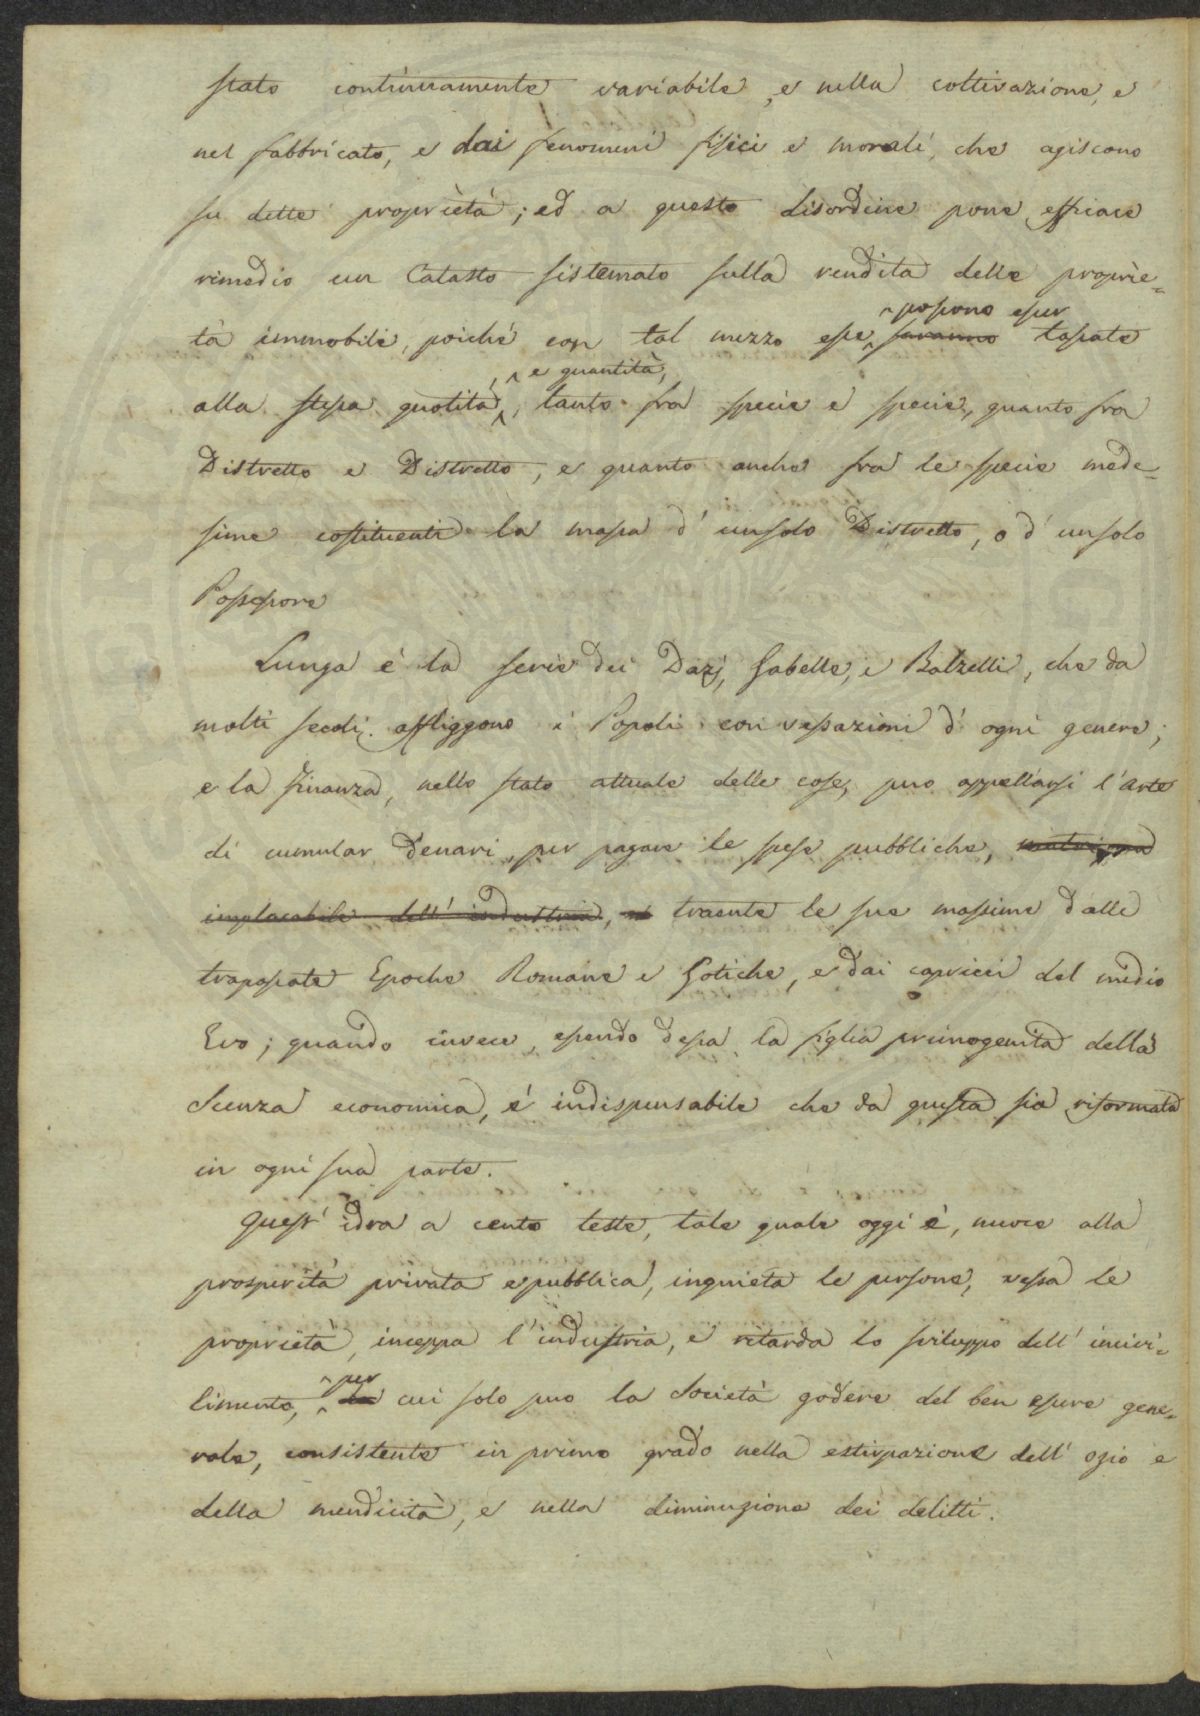 stato continuamente variabile, e nella coltivazione, e
nel fabbricato, e dai fenomeni fisici e morali, che agiscono
su dette proprietà; ed a questo disordine pone efficace
rimedio un Catasto sistemato sulla rendita delle proprie-
possono esser
tà immobili, poiché con tal mezzo esse saranno tassate
e quantità,
alla stessa quotità, tanto fra specie e specie, quanto fra
Distretto e Distretto, e quanto anche fra le specie mede-
sime costituenti la massa d'un solo Distretto, o d'un solo
Possessore
Lunga è la serie dei Dazj, Gabelle, e Balzelli, che da
molti secoli affliggono i Popoli con vessazioni d'ogni genere;
e la Finanza, nello stato attuale delle cose, puo appellarsi l'arte
di cumular denari, per pagare le spese pubbliche, matrigna
implacabile dell'industria, traente le sue massime dalle
trapassate Epoche Romane e Gotiche, e dai capricci del medio
Evo; quando invece, essendo dessa la figlia primogenita della
Scienza economica, è indispensabile che da questa sia riformata
in ogni sua parte.
Quest'idra a cento teste, tale quale oggi è, nuoce alla
prosperità privata e pubblica, inquieta le persone, vessa le
proprietà, inceppa l'industria, e ritarda lo sviluppo dell'incivi-
per
limento, cui solo puo la Società godere del ben essere gene-
rale, consistente in primo grado nella estirpazione dell'ozio e
della mendicità, e nella diminuzione dei delitti.